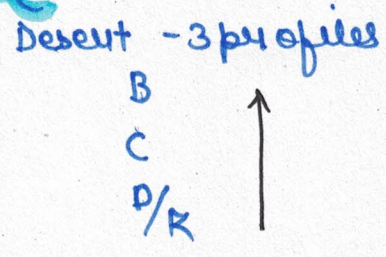 Desent - 3 profiles
B
C
D/R